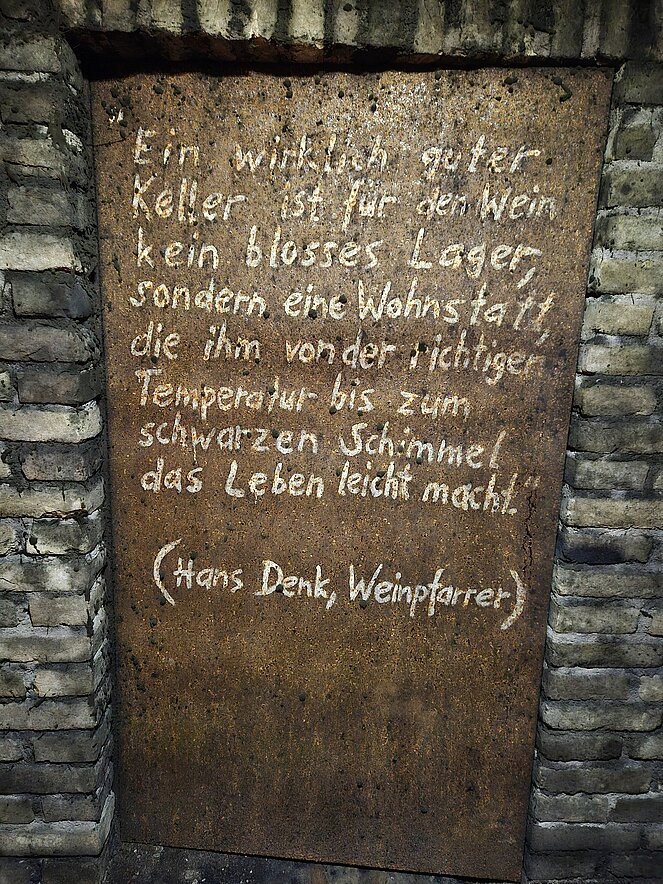 "Ein wirklich guter
Keller ist für den Wein
kein blosses Lager,
sondern eine Wohnstatt,
die ihm von der richtigen
Temperatur bis zum
schwarzen Schimmel
das Leben leicht macht."
(Hans Denk, Weinpfarrer)